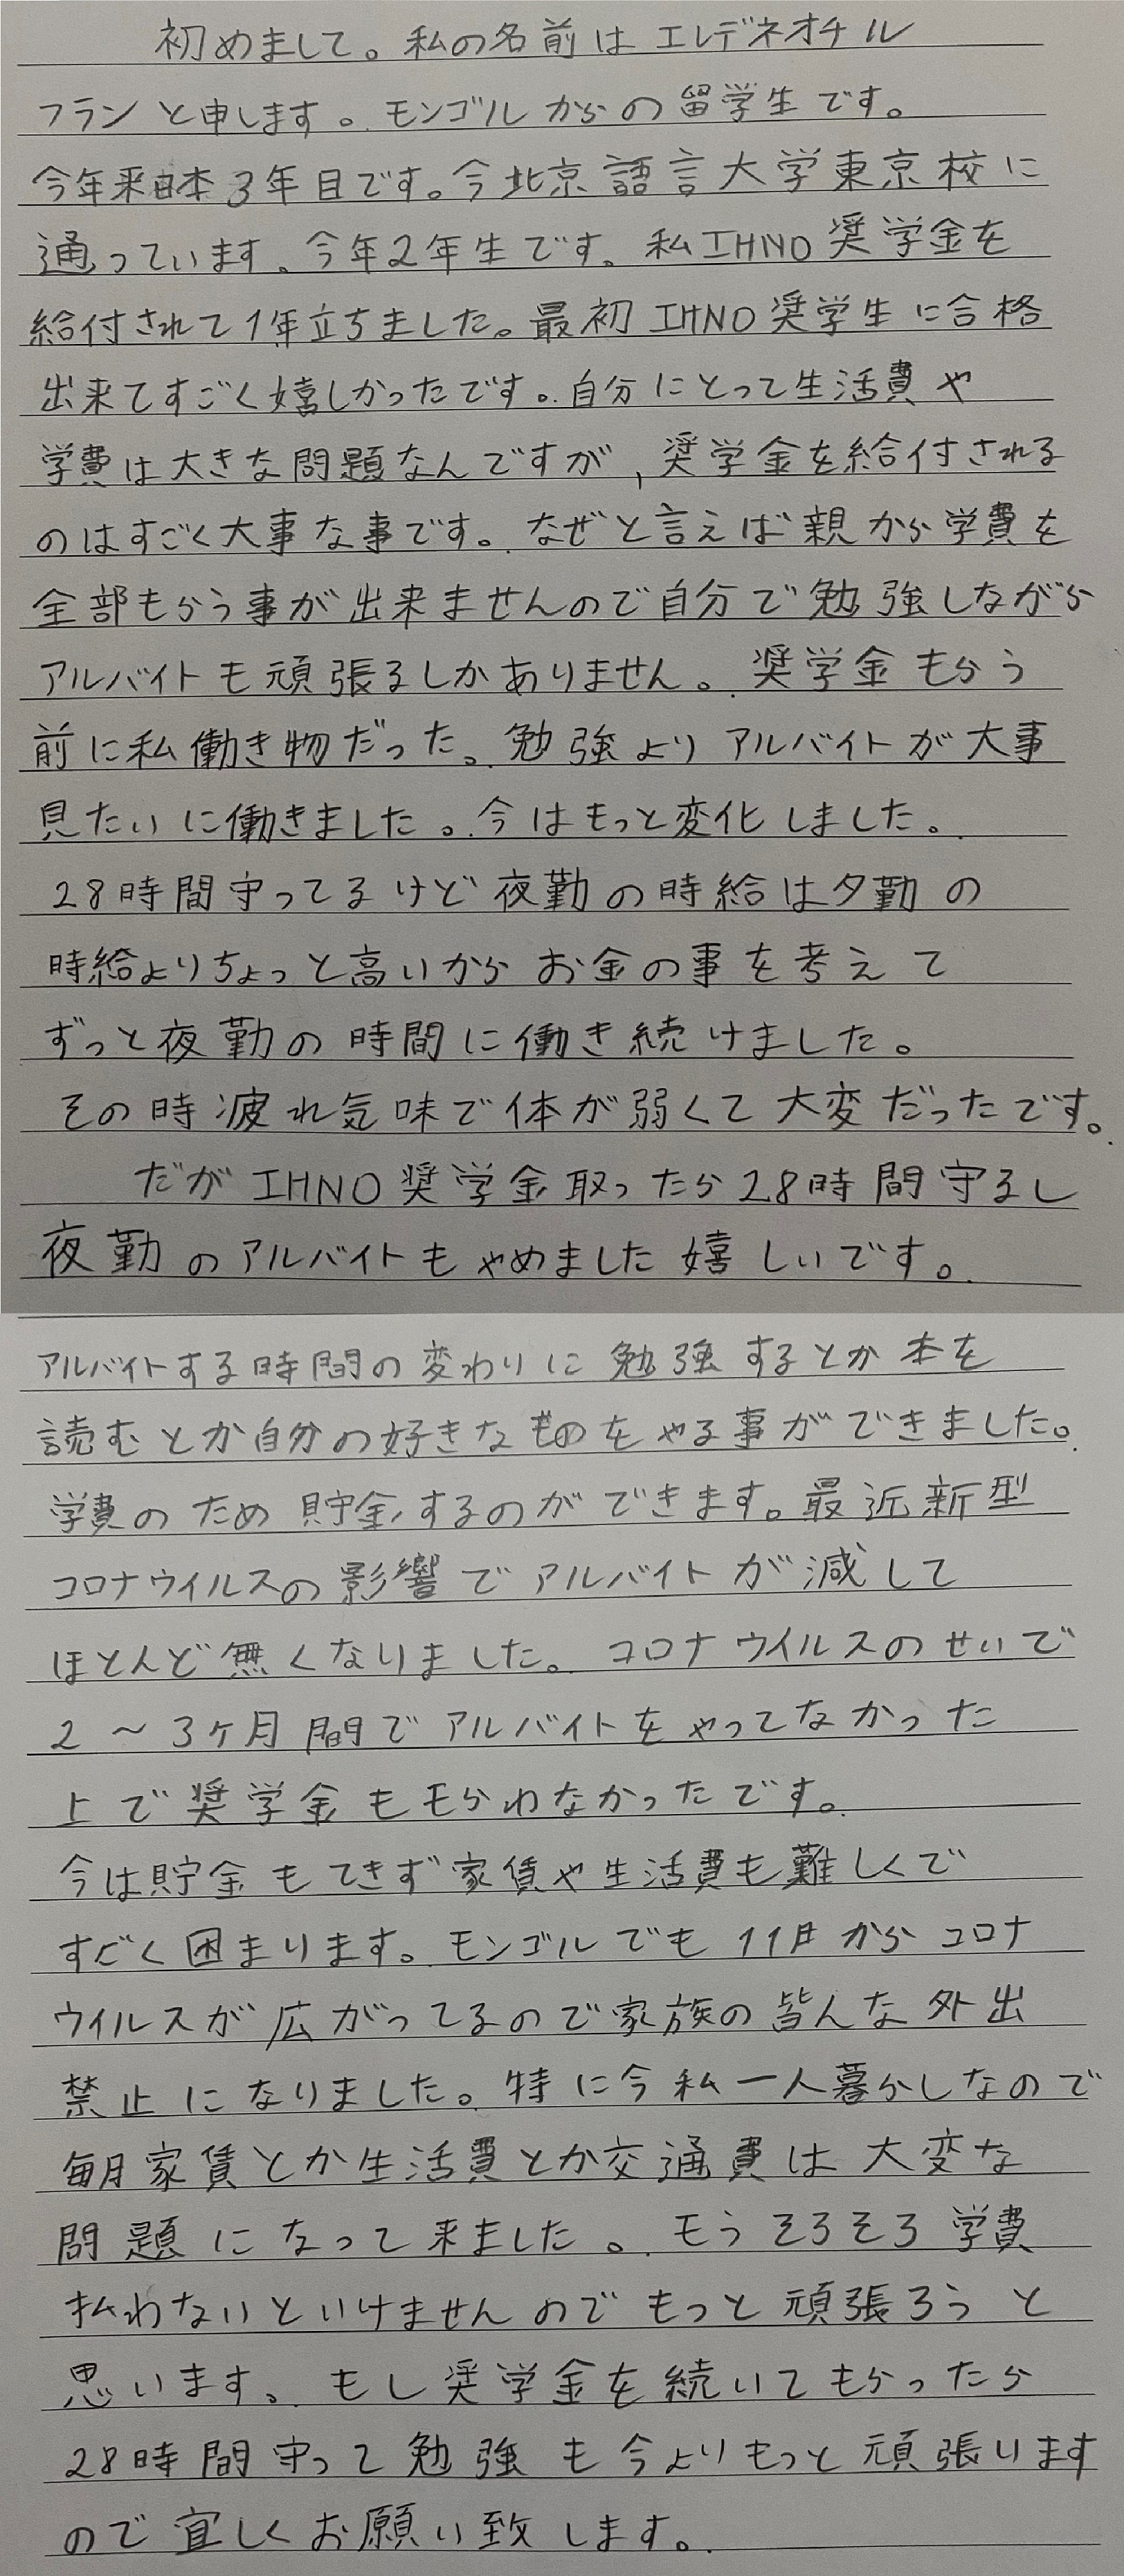 初めまして。私の名前はエレデネオチル
フランと申します。モンゴルからの留学生です。
今年来日本3年目です。今北京語言大学東京校に
通っています。今年2年生です。私IHNO奨学金を
給付されて1年立ちました。最初IHNO奨学生に合格
出来てすごく嬉しかったです。自分にとって生活費や
学費は大きな問題なんですが,奨学金を給付される
のはすごく大事な事です。なぜと言えば親から学費を
全部もらう事が出来ませんので自分で勉強しながら
アルバイトも頑張るしかありません。奨学金もらう
前に私働き物だった。勉強よりアルバイトが大事
見たいに働きました。今はもっと変化しました。
28時間守ってるけど夜勤の時給は夕勤の
時給よりちょっと高いからお金の事を考えて
ずっと夜勤の時間に働き続けました。
その時疲れ気味で体が弱くて大変だったです。
だがIHNO奨学金取ったら28時間守るし
夜勤のアルバイトもやめました嬉しいです。
アルバイトする時間の変わりに勉強するとか本を
読むとか自分の好きなものをやる事ができました。
学費のため貯金するのができます。最近新型
コロナウイルスの影響でアルバイトが減して
ほとんど無くなりました。コロナウイルスのせいで
2〜3ヶ月間でアルバイトをやってなかった
上で奨学金ももらわなかったです。
今は貯金もできず家賃や生活費も難しくて
すごく困まります。モンゴルでも11月からコロナ
ウイルスが広がってるので家族の皆んな外出
禁止になりました。特に今私一人暮らしなので
毎月家賃とか生活費とか交通費は大変な
問題になって来ました。もうそろそろ学費
払わないといけませんのでもっと頑張ろうと
思います。もし奨学金を続いてもらったら
28時間守って勉強も今よりもっと頑張ります
ので宜しくお願い致します。